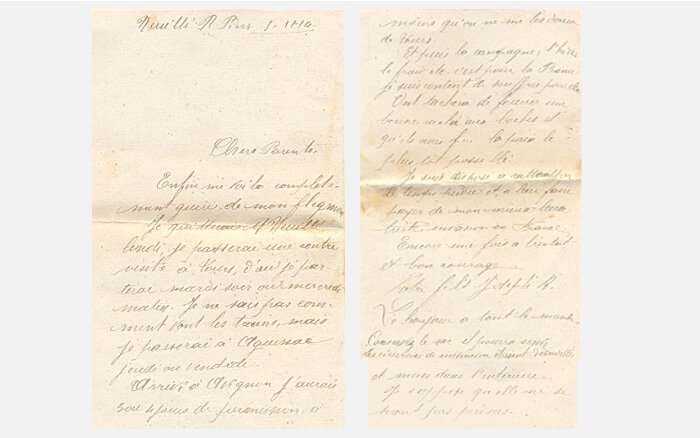 Neuillé P. Pierre 1914
Chers Parents.
Enfin me voilà complète-
ment guéri de mon flegmon
Je quitterai Neuillé
lundi, je passerai une contre
visite à Tours, d'où je par-
tirai mardi soir ou mercredi
matin. Je ne sais pas com-
ment vont les trains, mais
je passerai à Aguessac
jeudi ou vendredi.
Arrivé à Avignon j'aurai
jours de permission, à
moins qu'on ne me les donne
de Tours.
Et puis la campagne, l'hiver
le froid etc. c'est pour la France
je suis content de souffrir pour
tâcher de donner une
bonne aux boches et
qu'ils nous f... la paix le
plus tôt possible.
Je suis disposé à rattraper
le temps perdu et à leur faire
payer de mon mieux leur
invasion en France
Encore une fois à bientôt
et bon courage
Votre fils Joseph A.
Le bonjour à tout le monde
Conservez le sac et
et mises dans l'intérieur.
Je suppose qu'elle ne se
sont pas